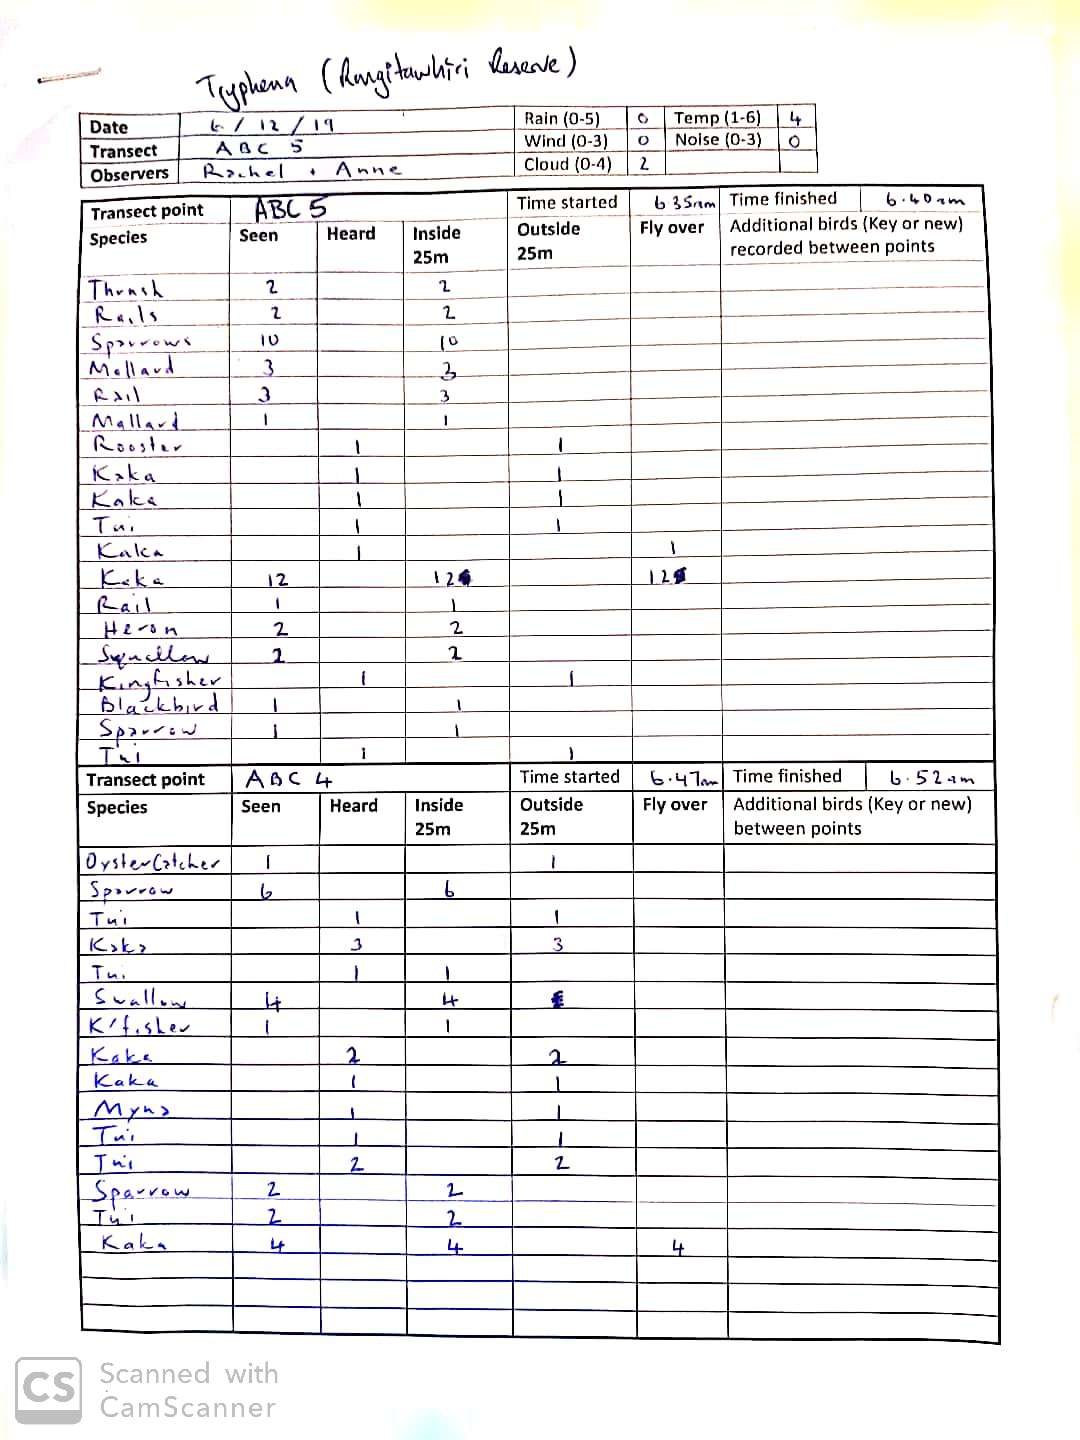 Tryphena (Rangitawhiri Reserve)
Date 6/12/19 Rain (0-5) 0 Temp (1-6) 4
Transect ABC 5 Wind (0-3) 0 Noise (0-3) 0
Observers Rachel + Anne Cloud (0-4) 2
Transect point ABC 5 Time started 6 35am Time finished 6.40am
Species Seen Heard Inside 25m Outside 25m Fly over Additional birds (Key or new) recorded between points
Thrush 2 2
Rails 2 2
Sparrows 10 10
Mallard 3 3
Rail 3 3
Mallard 1 1
Rooster 1 1
Kaka 1 1
Kaka 1 1
Tui 1 1
Kaka 1 1
Kaka 12 12 12
Rail 1 1
Heron 2 2
Swallow 2 2
Kingfisher 1 1
Blackbird 1 1
Sparrow 1 1
Tui 1 1
Transect point ABC 4 Time started 6.47am Time finished 6.52am
Species Seen Heard Inside 25m Outside 25m Fly over Additional birds (Key or new) between points
OysterCatcher 1 1
Sparrow 6 6
Tui 1 1
Kaka 3 3
Tui 1 1
Swallow 4 4
K'fisher 1 1
Kaka 2 2
Kaka 1 1
Myna 1 1
Tui 1 1
Tui 2 2
Sparrow 2 2
Tui 2 2
Kaka 4 4 4
CS Scanned with
CamScanner